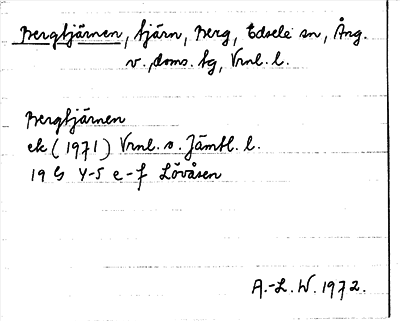 Bergtjärnen, tjärn, Berg, Edsele sn, Ång.
v. doms. hg, Vrnl. l.
Bergtjärnen
ek (1971) Vrnl. o. Jämtl. l.
19 G 4-5 e-f Lövåsen
A.-L. W. 1972.